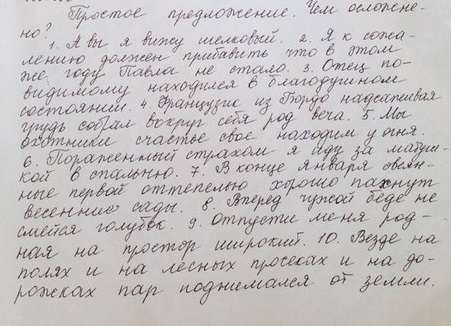 Простое предложение. Чем осложне-
но?
1. А вы я вижу шелковый. 2. Я к сожа-
лению должен прибавить что в этом
же, году Павла не стало. 3. Отец по-
видимому находился в благодушном
состоянии. 4. Французик из Бордо надсаживая
грудь собрал вокруг себя род веча. 5. Мы
охотники счастье свое находим у огня.
6. Пораженный страхом я иду за матуш-
кой в спальню. 7. В конце января овеян-
ные первой оттепелью хорошо пахнут
весенние сады. 8. Вперед чужой беде не
смейся голубок. 9. Отпусти меня род-
ная на простор широкий. 10. Везде на
полях и на лесных просеках и на до-
рожках пар поднимался от земли.